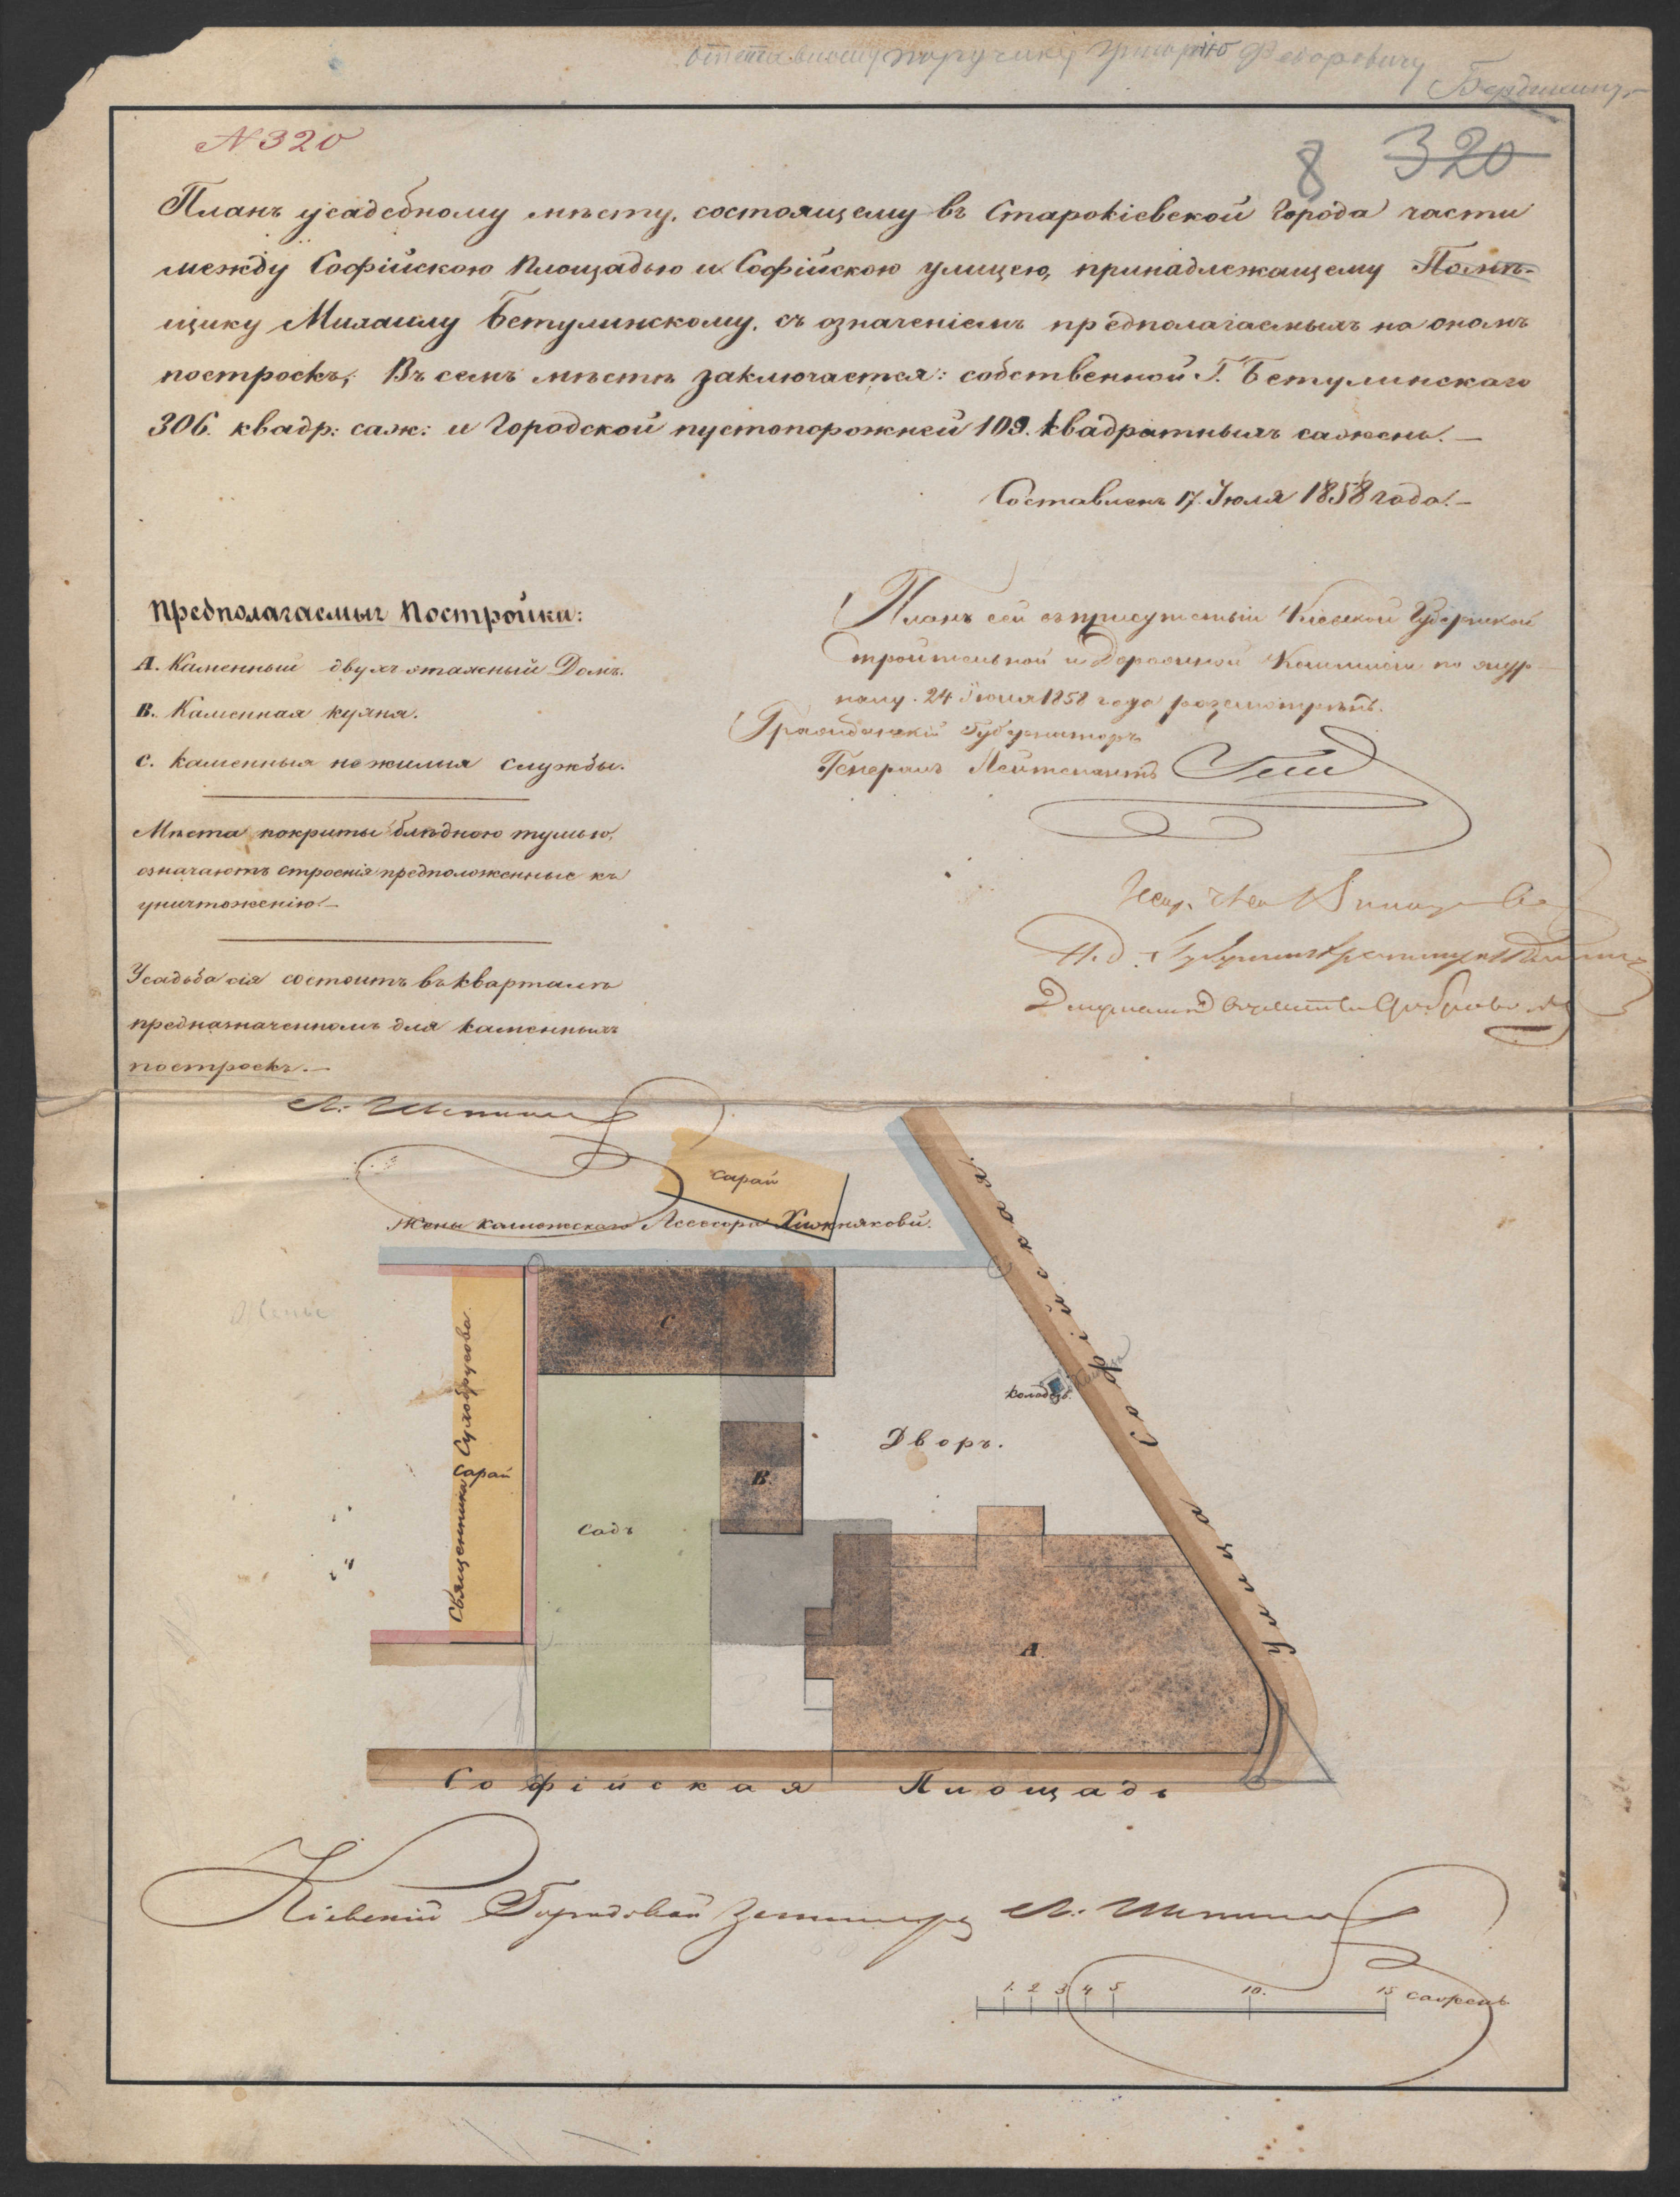 отставному поручику Григорію Федоровичу
N 320
8 320
Планъ усадебному мѣсту, состоящему въ Старокіевской Города части
между Софійскою Площадью и Софійскою улицею, принадлежащему Помѣ-
щику Михаилу Бетулинскому, съ означеніемъ предполагаемыхъ на ономъ
построекъ; Въ семъ мѣстѣ заключается: собственной Г. Бетулинскаго
306. квадр: саж: и Городской пустопорожней 109. квадратныхъ сажень.—
Составленъ 17. Іюля 1858 года.—
Предполагаемыя Постройки:
А. Каменный двухъ этажный Домъ.
В. Каменная кухня.
С. каменныя нежилыя службы.
Мѣста покриты блѣдною тушью,
означаютъ строенія предположенные къ
уничтоженію.—
Усадьба сія состоитъ въ кварталѣ
предназначенномъ для каменныхъ
построекъ.—
Планъ сей въ присутствіи Кіевской Губернской
Строительной и Дорожной Коммисіи по жур-
налу 24 Іюля 1858 года разсмотрѣнъ.
Гражданскій Губернаторъ
Генералъ Лейтенантъ Гессе
сарай
Жены коллежскаго Ассесора Хижняковй.
С
Священника Сухобрусова
сарай
садъ
В.
Дворъ.
колодезь.
А.
Софійская улица
Софійская Площадь
Кіевскій Городовой Землемѣръ
1. 2 3 4 5 10. 15 сажень